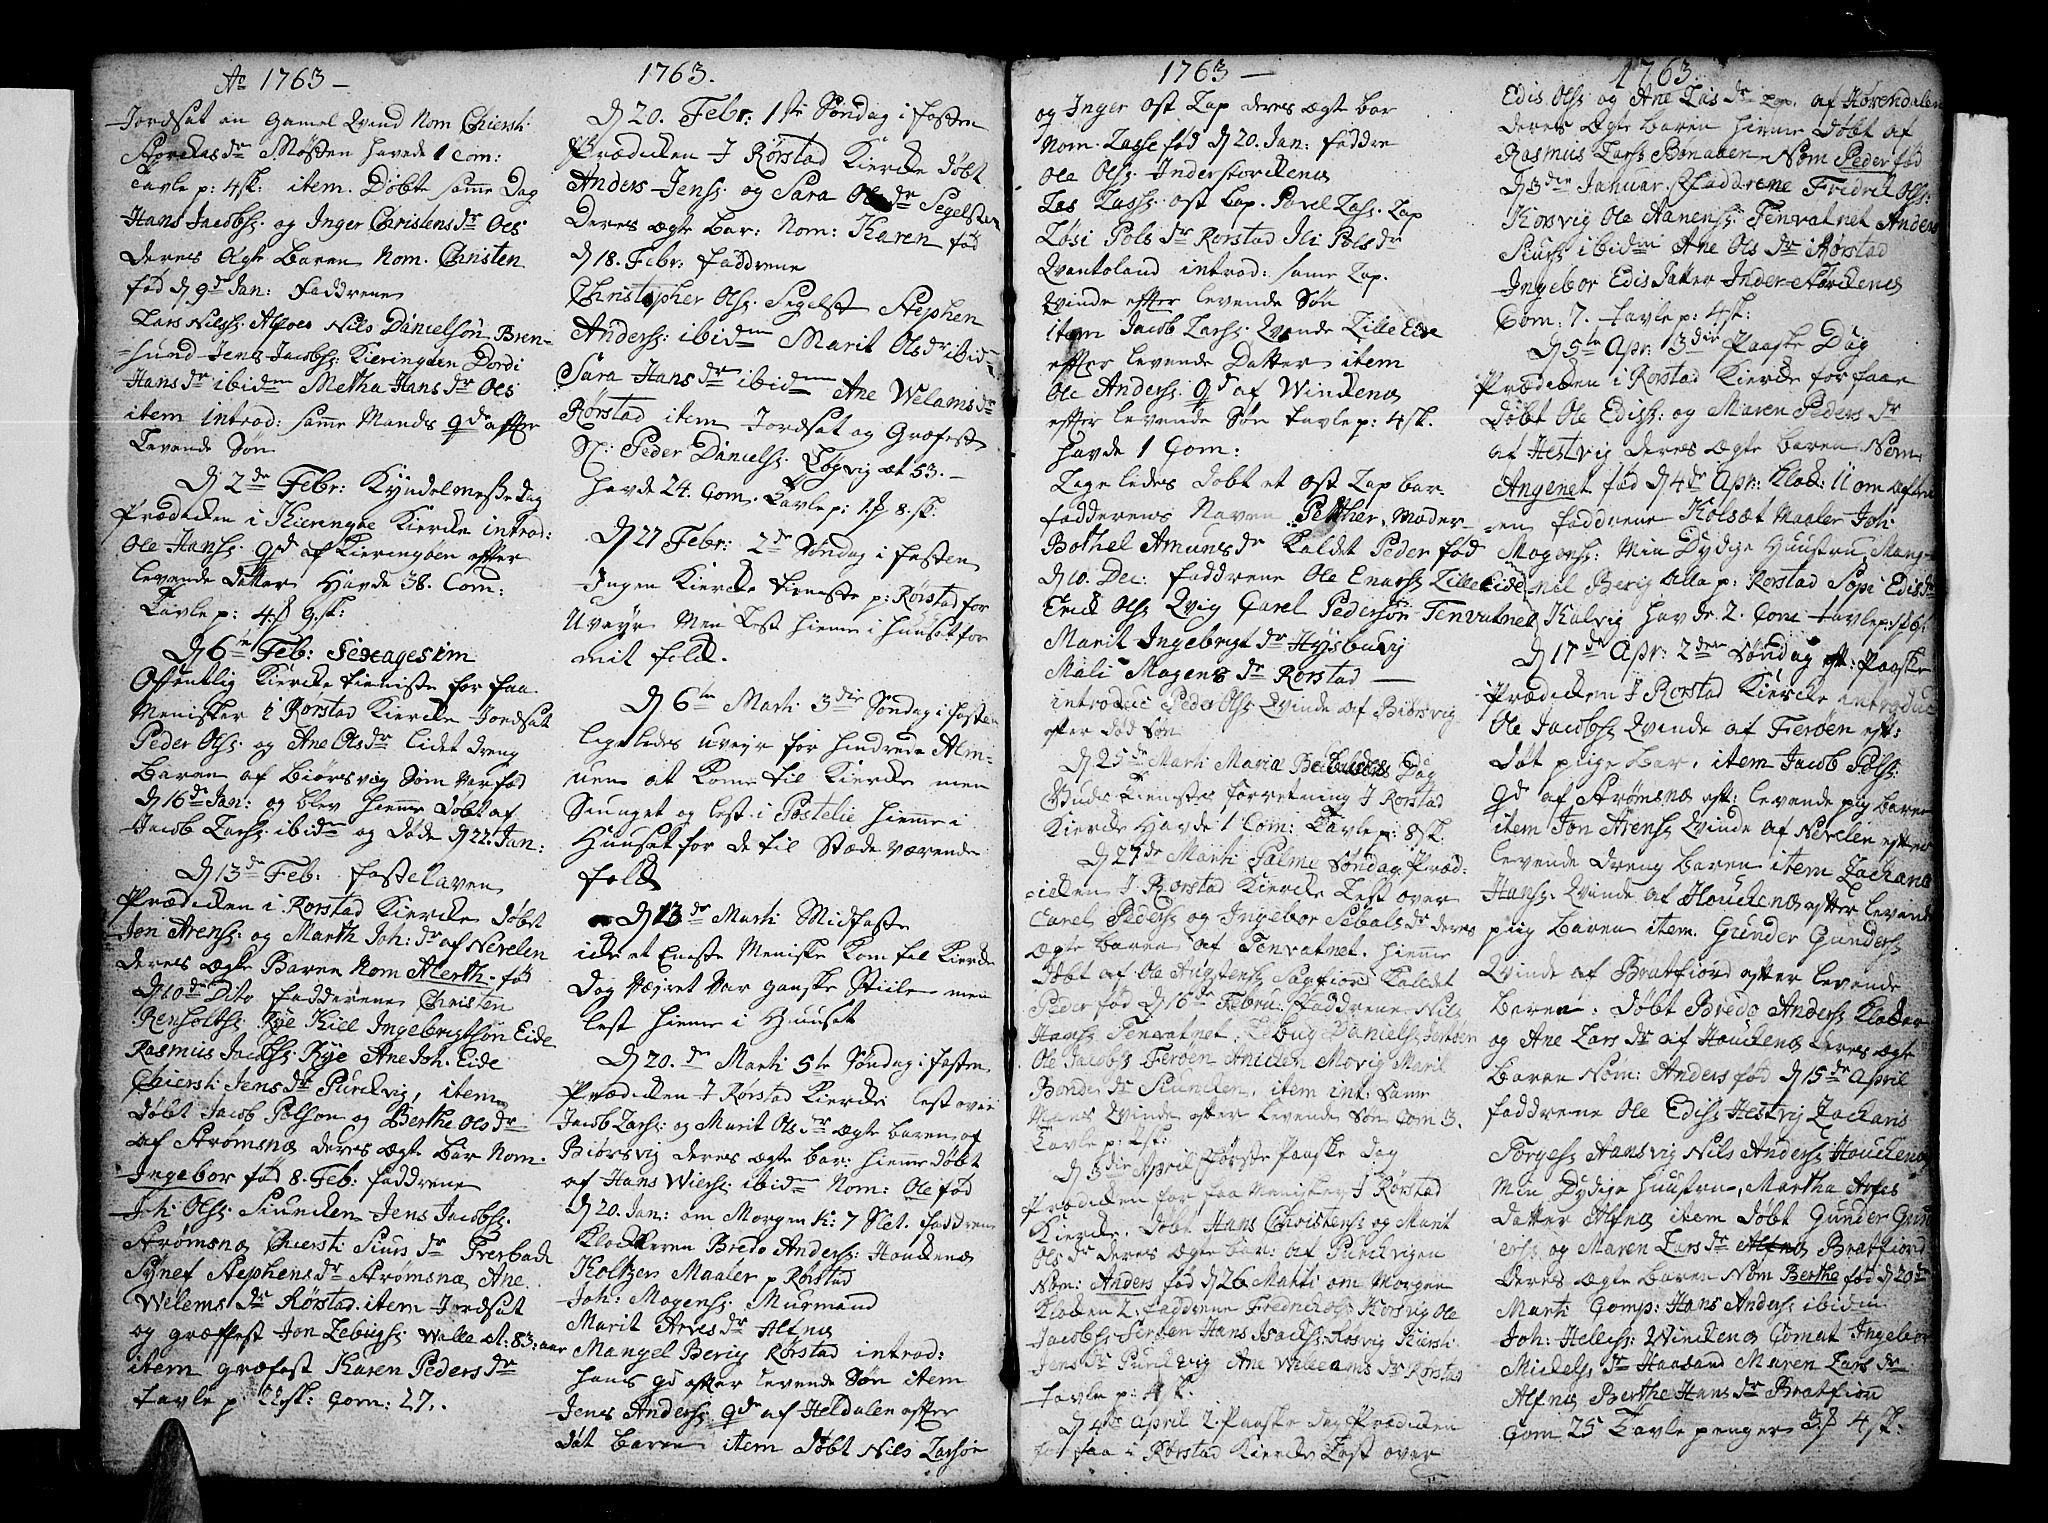 Ao 1763
Jordsat en gamel Qvind Nom Chiersti
Møsten havde 1 Com:
tavle p: 4sk: item. Døbte samme Dag
Hans Jacobs: og Inger Christensdr Oes
deres Ægte Baren Nom. Christen
fød d 9d Jan: Faddrene
Lars Nilss: Alfoes Nils Danielsøn Bren-
=sund Jens Jacobs: Kieringøen Dordi
Hansdr ibidem Metha Hansdr Oes
item introd: samme Mands qde effter
Levende Søn
d 2de Febr: Kyndelmesse dag
Prædicken i Kieringøe Kiercke introd:
Ole Hanss: qd af Kieringøen effter
levende datter Havde 38. Com:
Tavle p: 4 9.sk:
d 6te Feb: Sexagesim
Offentlig Kiercke tieniste for faa
Menisker i Rorstad Kiercke Jordsat
Peder Olss: og Ane Olsdr lidet dreng
Baren af Biørsvig Som var fød
d 16de Jan: og blev hieme døbt af
Jacob Larss: ibidm og døde d 22. Jan:
d 13de Feb: fastelaven
Prædicken i Rorstad Kiercke døbt
Jon Arens: og Marth Joh:dr af Nevelen
deres Ægte Baren Nom Alerth. fød
d 10de Dito fadderene Christen
Renholts: Rye Kiel Ingebrigtsøn Eide
Rasmus Jacobs: Rye Ane Joh: Eide
Chiersti Jensdr Purckvig, item
døbt Jacob Polsøn og Berthe Olsdr
af Strømsnæs deres Ægte Bar Nom.
Ingebor fød 8. Feb: faddrene
Joh: Olss: Siuncken Jens Jacobs:
Strømsnæs Chiersti Siursdr Tverback
Synef Stephensdr Strømsnæs Ane
Welems dr Rørstad. item Jordsat
og græffest Jon Zebugs: Walle et: 83: aar
item græfest Karen Pedersdr
tavle p: 22sk: Com: 27.
1763.
d 20. Febr: 1ste Søndag i fasten
Prædicken i Rørstad Kiercke døbt
Anders Jens: og Sara Olsdr Segelsten
Deres ægte Bar: Nom: Karen fød
d 18. Febr: faddrene
Christopher Ols: Segelst Stephen
Anders: ibidem Marit Olsdr ibid
Sara Hansdr ibidem Ane Welamsdr
Rørstad item Jordsat og Græfest
Sl: Peder Daniels: Løgvig æt 53.
havde 24. Com. Tavle p: 8 sk:
d 27 Febr: 2de Søndag i fasten
Ingen Kiercke tieniste p: Rørstad for
Uveyr Men Lest hieme i huuset for
mit folck.
d 6te Marti 3die Søndag i fasten
ligeledes uveyr for hindrede Alm-
uen at Kome til Kiercke men
Siunget og lest i Postelie hieme i
Huuset for de til Stæde værende
folck
d 13de Marti Midfaste
icke et Eneste Meniske Kom til Kiercke
Dog veyret var ganske Stiile men
lest hieme i Huuset
d 20.de Marti 5te Søndag i fasten
Prædicken i Rørstad Kiercke lest over
Jacob Larss: og Marit Olsdr ægte baren af
Biørsvig deres ægte bar: hieme døbt
af Hans Wiers: ibidm Nom: Ole fød
d 20. Jan: om Morgen K: 7 Slet. faddrene
Klockeren Bredo Anders: Houckenæs
Koltzen Maaler p Rørstad
Joh: Mogens: Murmand
Marit Arvesdr Alfnæs
Mangel Berig Rorstad introd:
hans qd effter levende Søn item
Jens Anders: qde af Heldalen effter
døt Baren item døbt Nils Larsøn
1763
og Inger Ost Lap deres ægte bar
Nom. Lasse fød d 20. Jan: faddre
Ole Olss: Inderstorckenæs
Las Lass: ost Lap. Povel Lass: Lap
Løsi Polsdr Rorstad Ili Polsdr
Qvantoland introd: same Lap.
Qvinde effter levende Søn
item Jacob Larss: Qvende Lille Eide
effter levende Datter item
Ole Anders: qd af Winckenæs
effter levende Søn tavle p: 4sk.
havde 1 Com:
Lige ledes døbt et ost Lap bar:
fadderens Naven Petther, Moder
Bothel Amunsdr Kaldet Peder fød
d 10. Dec: faddrene Ole Enars: Lille Eide
Erick Olss: Qvig Carel Pedersøn Tenvatnet
Marit Ingebrigtdr Høysbuvig
Mali Mogensdr Rorstad
introduc Peder Olss: Qvinde af Biørsvig
efter død Søn
d 25de Marti Mariæ Bebudelses Dag
Guds tienistes forretning i Rorstad
Kiercke Havde 1 Com: Tavle p: 8sk.
d 27de Marti Palme Søndag Præd:
=icken i Rorstad Kiercke Lest over
Carel Peders: og Ingebor Sebalsdr deres
Ægte baren af Tenvatnet. hieme
døbt af Ole Augstens: Sagfiord Kaldet
Peder fød d 16de Febru: Faddrene Nils
Hanss: Tenvatnet. Zebug Daniels:
Ole Jacobs: Ferøen Anicken Movig Maril
Bondedr Siuncken, item int: Same
Mans Qvinde effter Levende Søn Com 3.
Tavle p:
d 3die April Første Paaske dag
Prædicken for faa Menisker i Rørstad
Kiercke. Døbt Hans Christens: og Marit
Olsdr deres Ægte bar: af Purckvigen
Nom: Anders fød d 26 Marti om Morgen
Klocken 2. faddrene Fredrick Ols: Korsvig Ole
Jacobs: Ferøen Hans Isacks: Kosvig Kiersti
Jensdr Purckvig Ane Willamsdr Rorstad
tavle p: sk.
d 4de April 2. Paaske dag Prædicken
for faa i Rørstad Kiercke Lest over
1763.
Edis Olss: og Ane Lasdr af Hørendalen
deres Ægte Baren hieme døbt af
Rasmus Larss: Bonaaen Nom Peder fød
d 3die Januar. Faddrene Fredrick Olss:
Korsvig Ole Aanens: Tenvatnet Anders
Siurs: ibidem Ane Olsdr Rørstad
Ingebor Edis Datter Inder Storckenæs
Com: 7. tavle p: 4sk:
d 5te Apr: 3die Paaske Dag
Prædicken i Rorstad Kiercke for faae
Døbt Ole Edis: og Maren Pedersdr
af Hestvig deres Ægte Baren Nom
Angenet fød d 4de Apr: Klock: 11 om aften
=en faddrene Koltzet Maaler Joh:
Mogens: Min Dydige Huustru Mang-
nel Berig alle p: Rorstad Sopi Edisdr
Kalvig havde 2. Com tavle p:
d 17de Apr: 2den Søndag eft: Paaske
Prædicken i Rorstad Kiercke introduc
Ole Jacobs: Qvinde af Ferøen eft:
døt piige bar, item Jacob Pols:
qd af Strømsnæs eft: levende pig baren
item Jon Arens: Qvinde af Nevelen effter
levende dreng Baren item Zacharias
Hans: Qvinde af Houckenæs effter levende
piig Baren item. Gunder Gunders:
Qvinde af Bratfiord effter levende
Baren. Døbt Bredo Anders: Klocker
og Ane Larsdr af Houckenæs deres ægte
Baren Nom: Anders fød d 15de April
faddrene Ole Edis: Hestvig Zacharis
Torges: Hansvig Nils Anders: Houckenæs
Min Dydige huustru, Martha Arfes
datter Alfnæs item døbt Gunder Gun
ders: og Maren Larsdr Bratfiord
deres Ægte Baren Nom Berthe fød d 20de
Marti Comp: Hans Anders: ibidm
Joh: Helless: Winckenæs Comat Ingebor
Mickelsdr Haasand Maren Larsdr
Alfnæs Berthe Hansdr Bratfiord
Com 25 Tavle penger 4 sk: